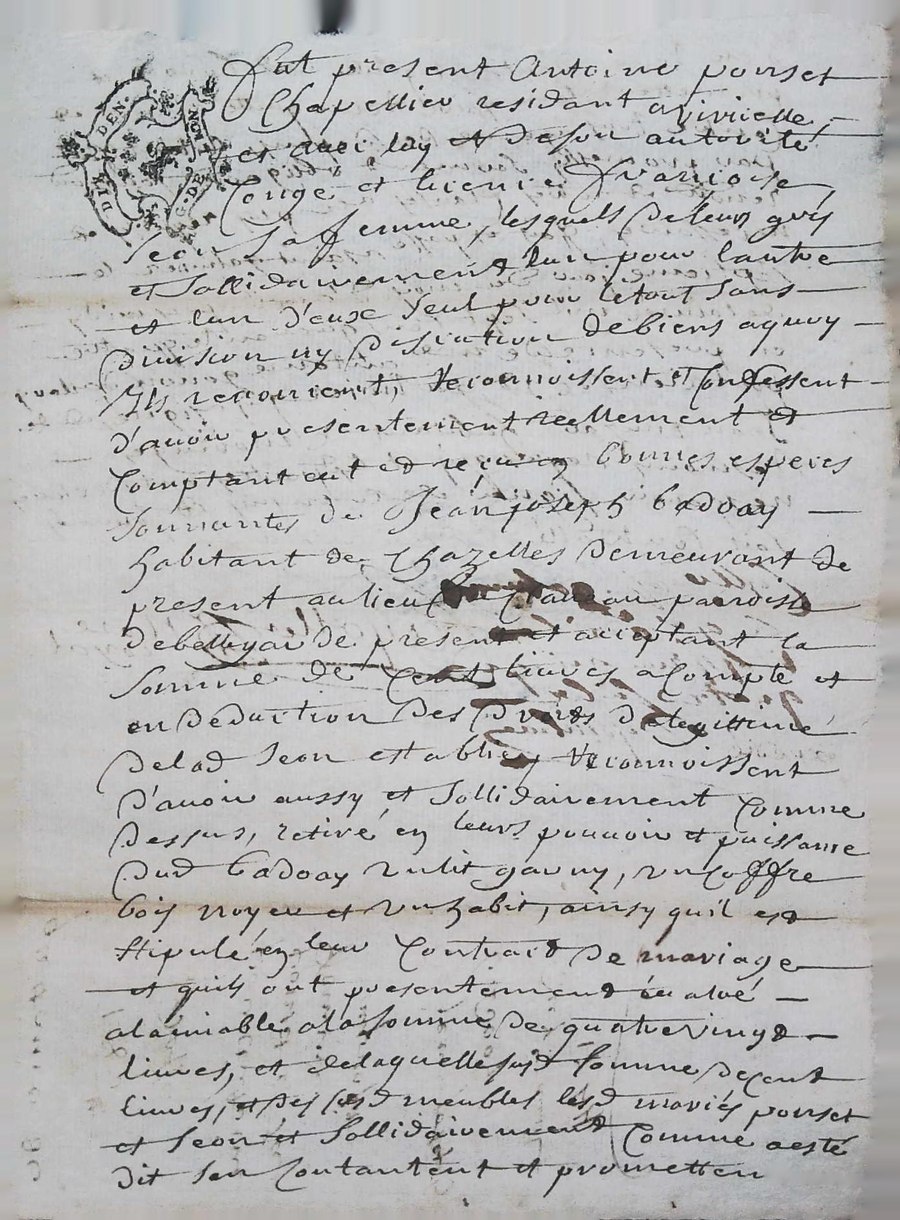 DIX DEN.
G. DE LION
Fut present Antoine ponset
Chapellier residant a viricelle
et avec luy et de son autorité
Conge et licence Francoise
Seon Sa femme, lesquels de leurs grés
et Sollidairement l'un pour l'autre
et l'un d'eux Seul pour le tout sans
division ny discution de biens a quoy
Ils renoncent, reconnoissent et Confessent
d'avoir presentement reellement et
Comptant eut et reçu en bonnes especes
Sonnantes de Jean joseph badoay
habitant de Chazelles demeurant de
present au lieu parroisse
de bellegarde present et acceptant la
Somme de Cent livres a Compte et
en deduction des droits de legittime
de lad Seon establie, reconnoissent
d'avoir aussy et Sollidairement Comme
dessus, retiré en leurs pouvoir et puissance
dud badoay un lit garny, un coffre
bois noyer et un habit, ainsy qu'il est
stipulé en leur Contract de mariage
et quils ont presentement évalué
a lamiable a la Somme de quatre vingt
livres, et de laquelle susd Somme de Cent
livres, et des susd meubles lesd mariés ponset
et Seon et Sollidairement Comme a esté
dit Sen Contantent et prometten